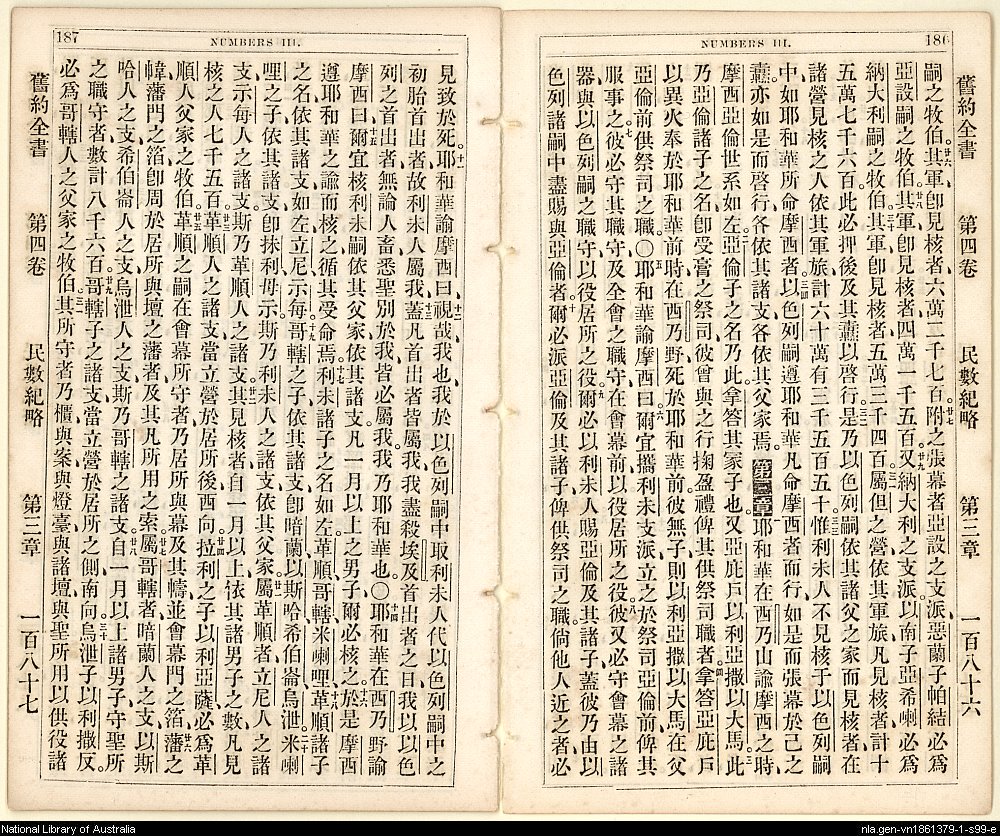 186
NUMBERS III.
舊約全書 第四卷 民數紀略 第三章 一百八十六
嗣之牧伯。其軍卽見核者六萬二千七百。附之張幕者亞設之支派、惡蘭子帕結必為
亞設嗣之牧伯。其軍卽見核者四萬一千五百。又納大利之支派、以南子亞希喇必為
納大利嗣之牧伯。其軍卽見核者五萬三千四百。屬但之營、依其軍旅、凡見核者、計十
五萬七千六百。此必押後及其纛以啓行。是乃以色列嗣依其諸父之家而見核者、在
諸營見核之人、依其軍旅、計六十萬有三千五百五十。惟利未人不見核于以色列嗣
中、如耶和華所命摩西者。以色列嗣遵耶和華凡命摩西者而行、如是而張幕於己之
纛、亦如是而啓行、各依其諸支、各依其父家焉。 第三章 耶和華在西乃山諭摩西之時、
摩西亞倫世系如左。亞倫子之名乃此、拿答其冢子也、又亞庇戶以利亞撒以大馬。此
乃亞倫諸子之名、卽受膏之祭司、彼曾與之行掬盈禮、俾其供祭司職者。拿答亞庇戶
以異火奉於耶和華前時、在西乃野、死於耶和華前、彼無子、則以利亞撒以大馬在父
亞倫前供祭司之職。〇耶和華諭摩西曰、爾宜攜利未支派、立之於祭司亞倫前、俾其
服事之。彼必守其職守、及全會之職守、在會幕前、以役居所之役。彼又必守會幕之諸
器、與以色列嗣之職守、以役居所之役。爾必以利未人賜亞倫及其諸子、蓋彼乃由以
色列諸嗣中盡賜與亞倫者。爾必派亞倫及其諸子、俾供祭司之職、倘他人近之者、必
187
NUMBERS III.
舊約全書 第四卷 民數紀略 第三章 一百八十七
見致於死。耶和華諭摩西曰、視哉、我也、我於以色列嗣中取利未人、代以色列嗣中之
初胎首出者、故利未人屬我、蓋凡首出者皆屬我、我盡殺埃及首出者之日、我以以色
列之首出者、無論人畜、悉聖別於我、皆必屬我、我乃耶和華也。〇耶和華在西乃野諭
摩西曰、爾宜核利未嗣、依其父家、依其諸支、凡一月以上之男子、爾必核之。於是摩西
遵耶和華之諭而核之、循其受命焉。利未諸子之名如左、革順、哥轄、米喇哩。革順諸子
之名、依其諸支如左、立尼、示每。哥轄之子、依其諸支、卽暗蘭、以斯哈、希伯崙、烏泄。米喇
哩之子、依其諸支、卽抹利、母示、斯乃利未人之諸支、依其父家。屬革順者、立尼人之諸
支、示每人之諸支、斯乃革順人之諸支。其見核者、自一月以上、依其諸男子之數、凡見
核之人七千五百。革順人之諸支、當立營於居所後西向。拉利之子以利亞薩必為革
順人父家之牧伯。革順之嗣在會幕所守者、乃居所與幕、及其幬、並會幕門之箔、藩之
幃、藩門之箔、卽周於居所與壇之藩者、及其凡所用之索。屬哥轄者、暗蘭人之支、以斯
哈人之支、希伯崙人之支、烏泄人之支、斯乃哥轄之諸支。自一月以上諸男子、守聖所
之職守者、數計八千六百。哥轄子之諸支、當立營於居所之側南向。烏泄子以利撒反。
必為哥轄人之父家之牧伯。其所守者、乃櫃與案與燈臺與諸壇、與聖所用以供役諸
National Library of Australia
nla.gen-vn1861379-1-s99-e